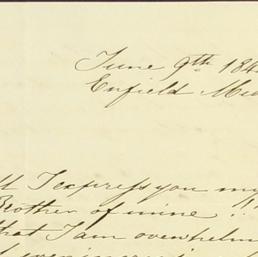 June 9th 184
Enfield
I express you my
Brother of mine!
that I am overwhelm